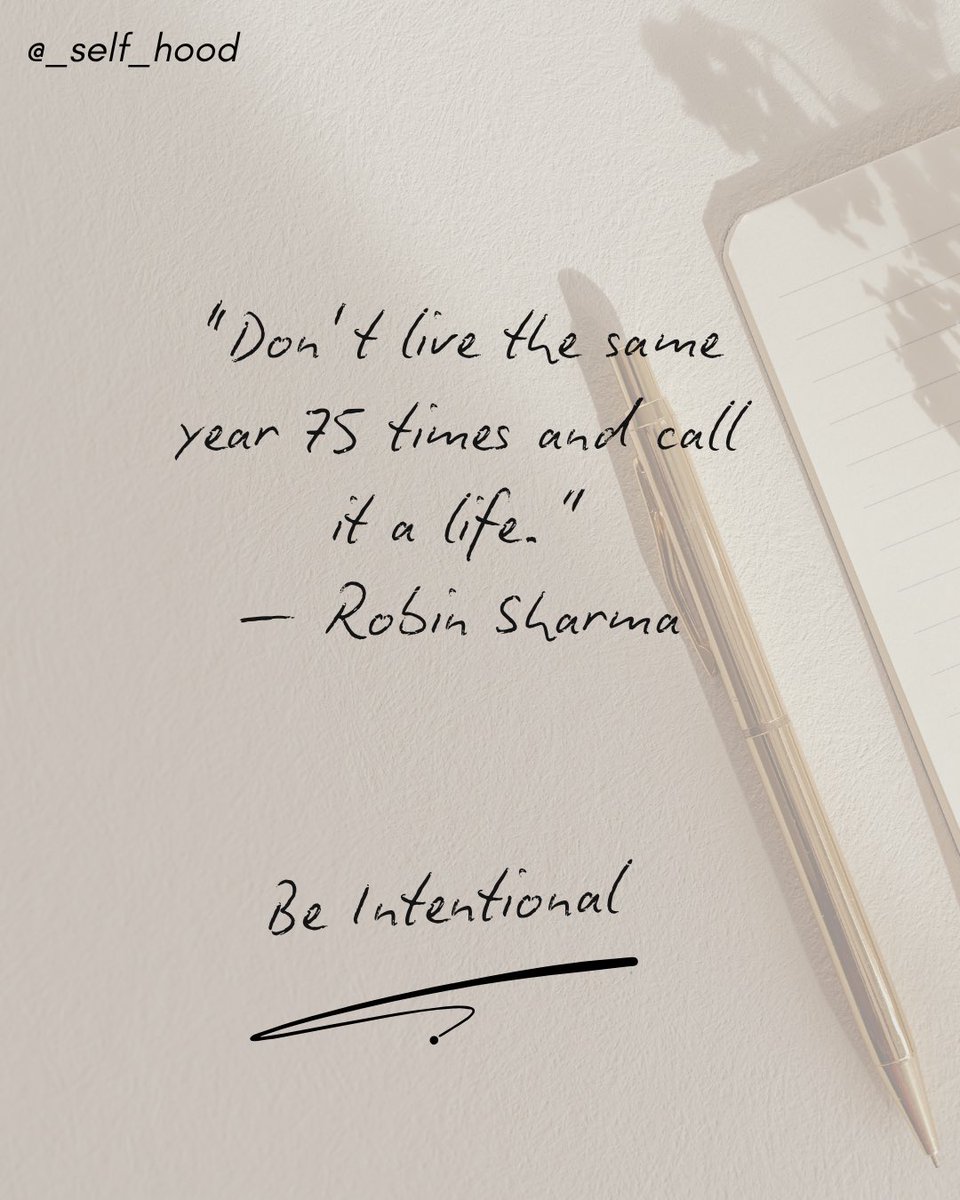 @_self_hood
"Don't live the same
year 75 times and call
it a life."
— Robin Sharma
Be Intentional